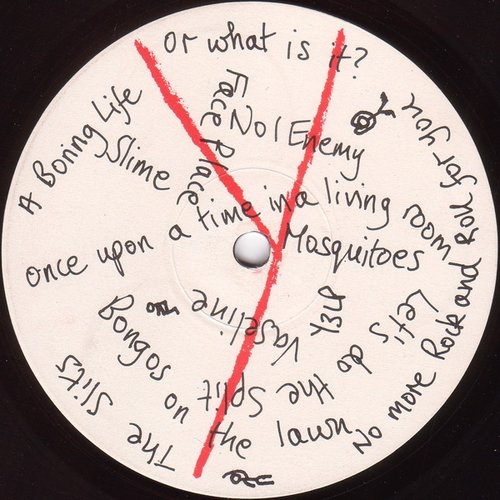 or what is it?
A Boring Life
Slime
Face Place
No 1 Enemy
once upon a time in a living room
Mosquitoes
No more Rock and Roll for you
Let's do the Split
Vaseline
Bongos on the lawn
The Slits